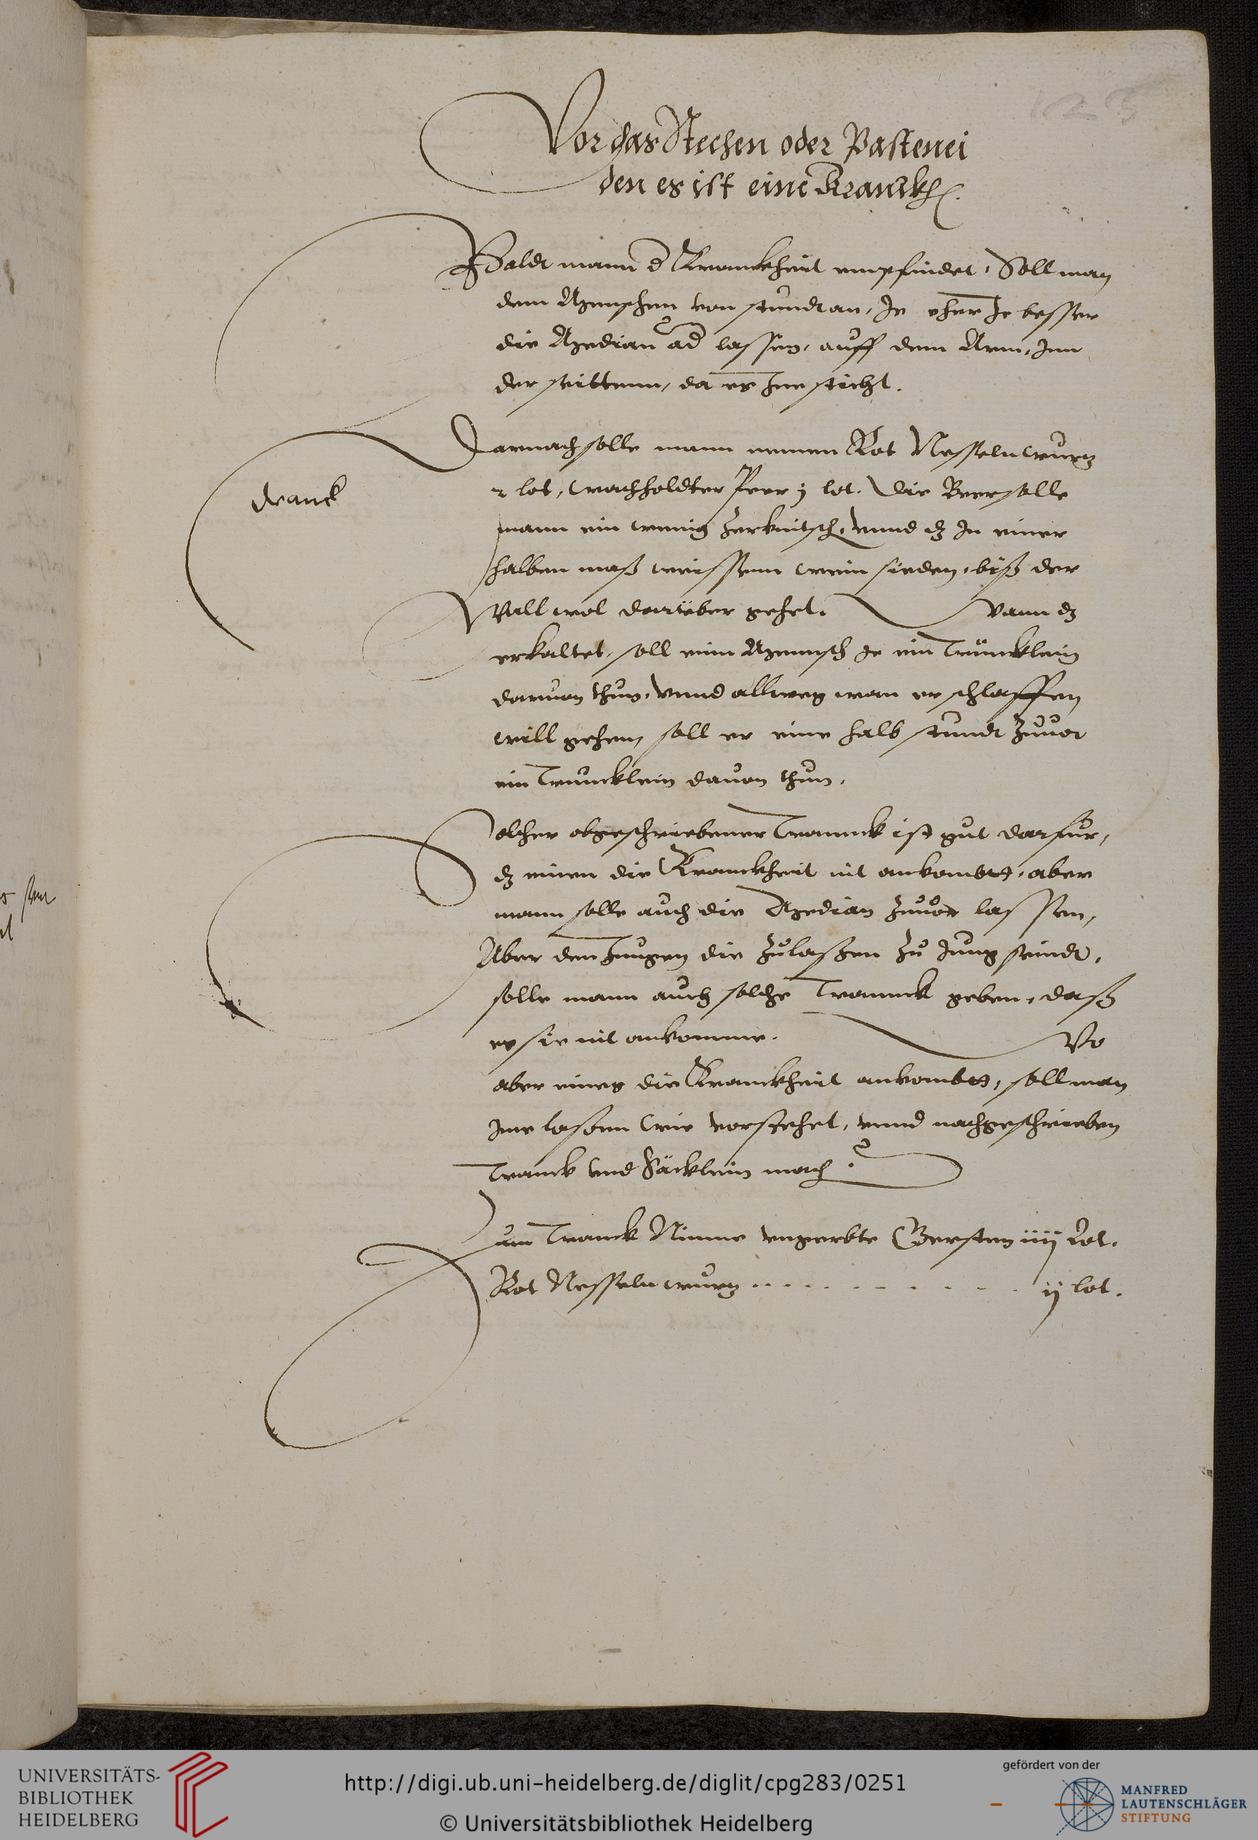 125
Vor das Stechen oder Pastenei
den es ist eine Kranckh.
Baldt mann d Kranckheit empfindet, Soll man
dem Menschen von stundt an, Je eher Je besser
die Median ad lassen, auff dem Arm, Inn
der seittenn, da es Jne sticht.
Darnach solle mann nemen Rot Nesseln wurtz
2 lot, wachholdter Peer j lot. Die Beer solle
dranck
mann ein wenig zerknitsch, vnnd dz Jn einer
halben maß weissenn wein sieden, biß der
Wall wol darüber gehet. Wann dz
erkaltet, soll eim Mennsch ye ein Trüncklein
daruon thun, vnnd allweg wan er schlaffen
will gehen, soll er eine halb stundt zuuor
ein Truncklein dauon thun.
Solcher obgeschriebener Tranck ist gut darfur,
dz einen die Kranckheit nit ankombtt, aber
mann solle auch die Median zuuor lassen,
Aber den Jungen die zulaßen zu Jung seindt,
solle mann auch solche Tranck geben, daß
es sie nit ankomme. Wo
aber einen die Kranckheit ankombtt, soll man
Jme laßen wie vorstehet, vnnd nachgeschrieben
Tranck vnd Säcklein mach.
Zum Tranck Nimme vngerbte Gersten iiij Lot.
Rot Nesseln wurtz . . . . . . . . . . ij lot.
http://digi.ub.uni-heidelberg.de/diglit/cpg283/0251
© Universitätsbibliothek Heidelberg
UNIVERSITÄTS-
BIBLIOTHEK
HEIDELBERG
gefördert von der
MANFRED
LAUTENSCHLÄGER
STIFTUNG